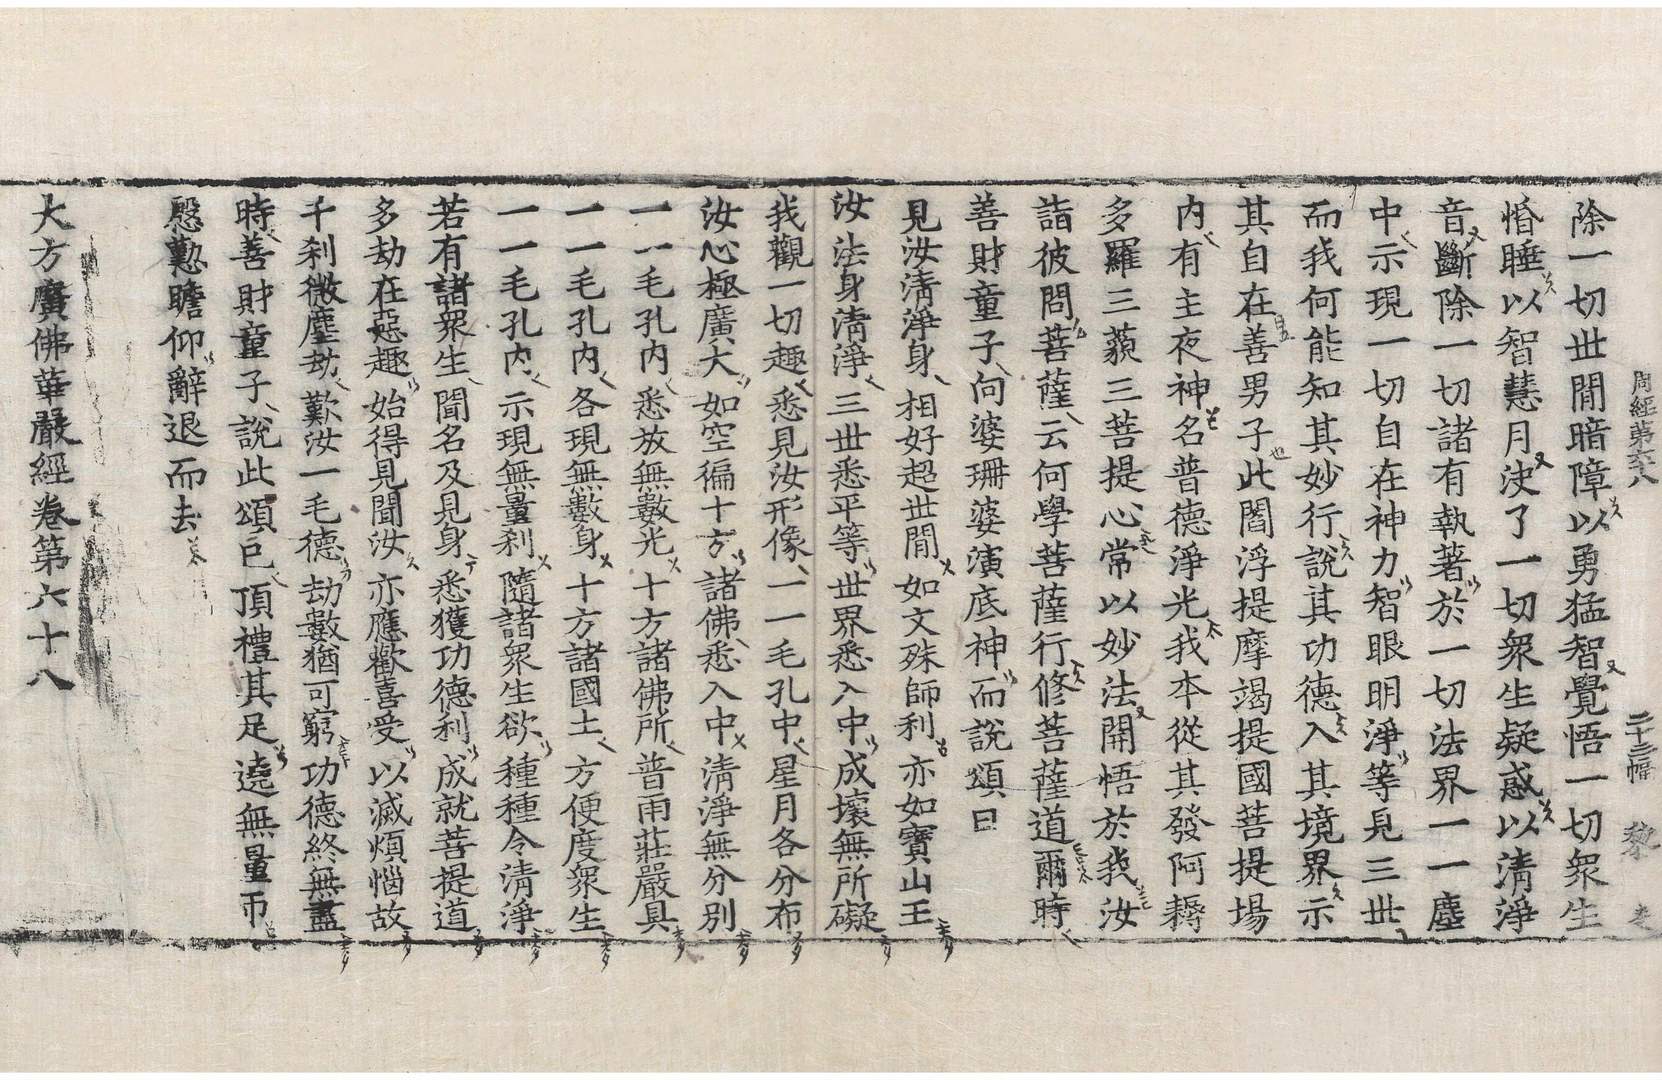 周經第六十八 二十三幅 黎
除一切世間暗障以勇猛智覺悟一切衆生
惛睡以智慧月決了一切衆生疑惑以清淨
音斷除一切諸有執著於一切法界一一塵
中示現一切自在神力智眼明淨等見三世
而我何能知其妙行說其功德入其境界示
其自在善男子此閻浮提摩竭提國菩提場
內有主夜神名普德淨光我本從其發阿耨
多羅三藐三菩提心常以妙法開悟於我汝
詣彼問菩薩云何學菩薩行修菩薩道爾時
善財童子向婆珊婆演底神而說頌曰
見汝清淨身相好超世間如文殊師利亦如寶山王
汝法身清淨三世悉平等世界悉入中成壞無所礙
我觀一切趣悉見汝形像一一毛孔中星月各分布
汝心極廣大如空徧十方諸佛悉入中清淨無分別
一一毛孔內悉放無數光十方諸佛所普雨莊嚴具
一一毛孔內各現無數身十方諸國土方便度衆生
一一毛孔內示現無量刹隨諸衆生欲種種令清淨
若有諸衆生聞名及見身悉獲功德利成就菩提道
多劫在惡趣始得見聞汝亦應歡喜受以滅煩惱故
千刹微塵劫歎汝一毛德劫數猶可窮功德終無盡
時善財童子說此頌已頂禮其足遶無量帀
慇懃瞻仰辭退而去
大方廣佛華嚴經卷第六十八